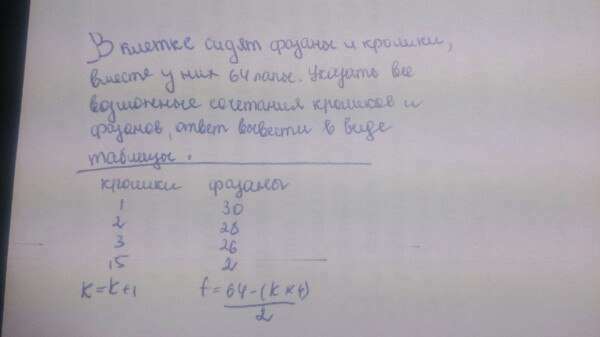 В клетке сидят фазаны и кролики,
вместе у них 64 лапы. Указать все
возможные сочетания кроликов и
фазанов, ответ вывести в виде
таблицы.
кролики фазаны
1 30
2 28
3 26
15 2
K = K+1 f = 64-(K×4)
2